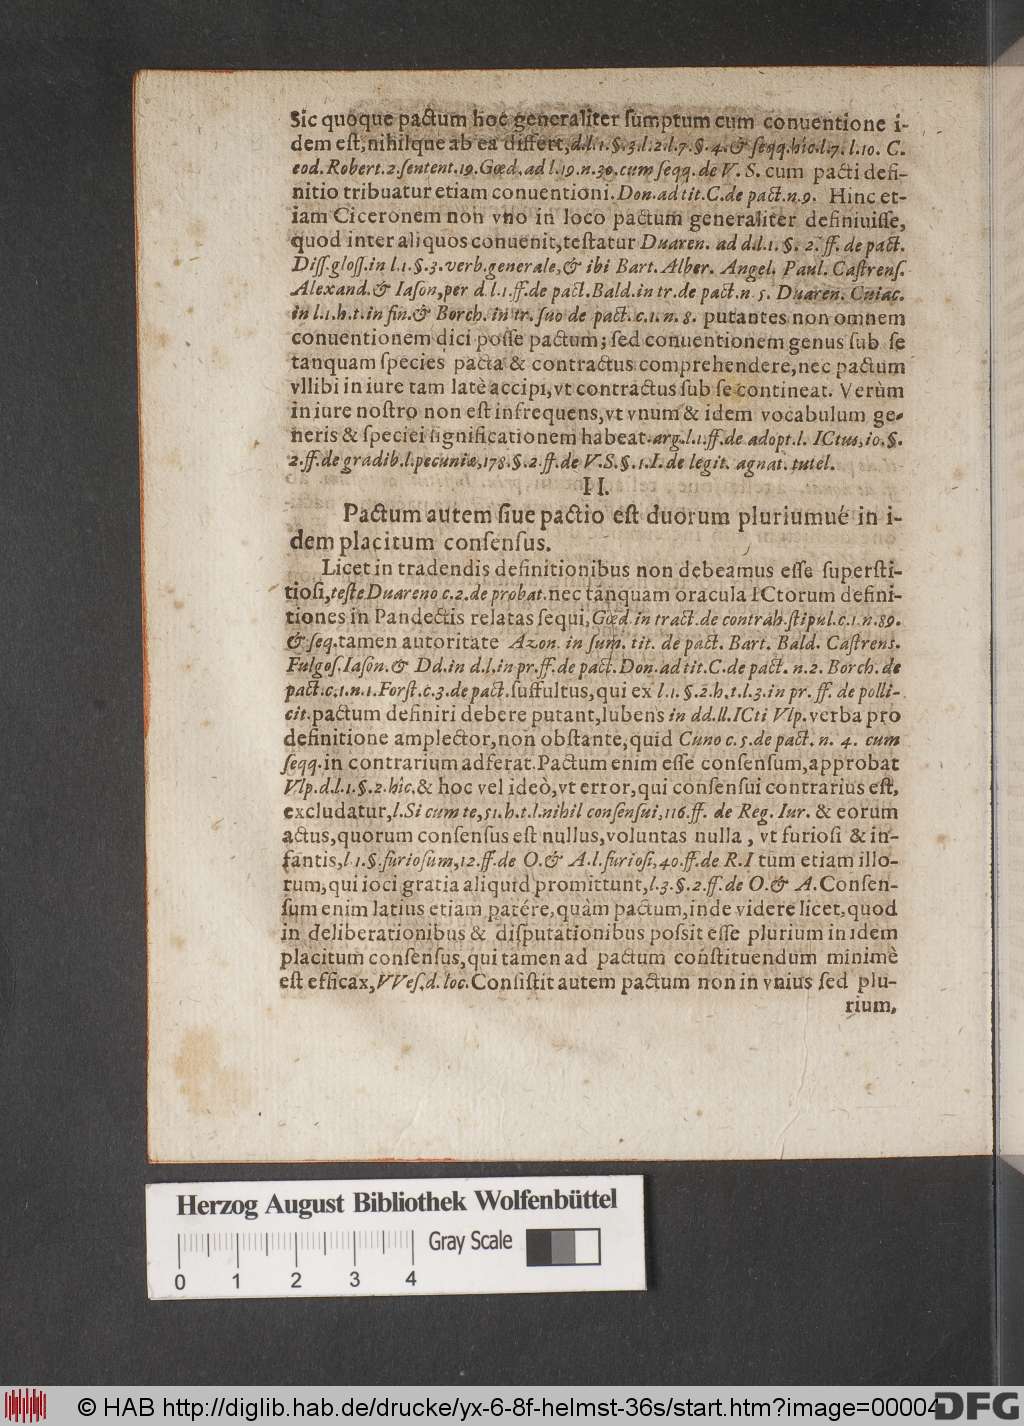 Sic quoque pactum hoc generaliter ſumptum cum conuentione i-
dem eſt, nihilque ab ea differt, d.l.1.§.3.l.2.l.7.§.4.& ſeqq.hîc.l.7.l.10. C.
eod. Robert.2.ſentent.19.Gœd.ad l.19.n.30.cum ſeqq.de V. S. cum pacti defi-
nitio tribuatur etiam conuentioni. Don.ad tit.C.de pact.n.9. Hinc et-
iam Ciceronem non vno in loco pactum generaliter definiuiſſe,
quod inter aliquos conuenit, teſtatur Duaren. ad d.l.1. §. 2. ff. de pact.
Diſſ.gloſſ.in l.1.§.3.verb.generale,& ibi Bart. Alber. Angel. Paul. Caſtrenſ.
Alexand.& Iaſon,per d.l.1.ff.de pact.Bald.in tr.de pact.n 5. Duaren. Cuiac.
in l.1.h.t.in fin.& Borch. in tr. ſuo de pact.c.1.n. 8. putantes non omnem
conuentionem dici poſſe pactum; ſed conuentionem genus ſub ſe
tanquam ſpecies pacta & contractus comprehendere, nec pactum
vllibi in iure tam latè accipi, vt contractus ſub ſe contineat. Verùm
in iure noſtro non eſt infrequens, vt vnum & idem vocabulum ge-
neris & ſpeciei ſignificationem habeat. arg.l.1.ff.de adopt.l. ICtus,10.§.
2.ff.de gradib.l.pecuniæ,178.§.2.ff.de V.S.§.1.I.de legit. agnat. tutel.
II.
Pactum autem ſiue pactio eſt duorum pluriumué in i-
dem placitum conſenſus.
Licet in tradendis definitionibus non debeamus eſſe ſuperſti-
tioſi, teſte Duareno c.2.de probat. nec tanquam oracula ICtorum defini-
tiones in Pandectis relatas ſequi, Gœd.in tract.de contrah.ſtipul.c.1.n.89.
& ſeq. tamen autoritate Azon. in ſum. tit. de pact. Bart. Bald. Caſtrens.
Fulgoſ.Iaſon.& Dd.in d.l.in pr.ff.de pact.Don.ad tit.C.de pact. n.2. Borch. de
pact.c.1.n.1.Forſt.c.3.de pact. ſuffultus, qui ex l.1. §.2.h.t.l.3.in pr. ff. de polli-
cit. pactum definiri debere putant, lubens in dd.ll.ICti Vlp. verba pro
definitione amplector, non obſtante, quid Cuno c.5.de pact. n. 4. cum
ſeqq. in contrarium adferat. Pactum enim eſſe conſenſum, approbat
Vlp.d.l.1.§.2.hîc.& hoc vel ideò, vt error, qui conſenſui contrarius eſt,
excludatur, l.Si cum te,51.h.t.l.nihil conſenſui,116.ff. de Reg. Iur. & eorum
actus, quorum conſenſus eſt nullus, voluntas nulla, vt furioſi & in-
fantis, l 1.§.furioſum,12.ff.de O.& A.l.furioſi,40.ff.de R.I tùm etiam illo-
rum, qui ioci gratia aliquid promittunt, l.3.§.2.ff.de O.& A. Conſen-
ſum enim latius etiam patére, quàm pactum, inde videre licet, quod
in deliberationibus & diſputationibus poſsit eſſe plurium in idem
placitum conſenſus, qui tamen ad pactum conſtituendum minimè
eſt efficax, VVeſ.d. loc. Conſiſtit autem pactum non in vnius ſed plu-
rium,
Herzog August Bibliothek Wolfenbüttel
Gray Scale
0 1 2 3 4
© HAB http://diglib.hab.de/drucke/yx-6-8f-helmst-36s/start.htm?image=00004
DFG